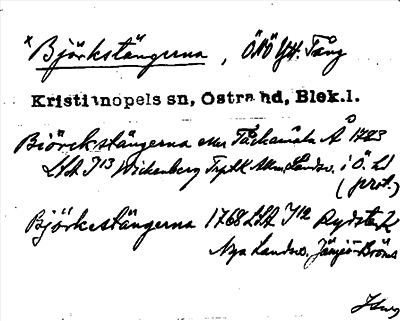 x Björkstängerna, ÖNÖ Ytt. Tång
Kristianopels sn, Östra hd, Blek.l.
Biörckstängerna eller Å 1723
LSA I13 Wickenberg Landsv. i Ö. Ld
(prot.)
Björkestängerna 1768 LSA I12 Rydstedt
Nya Landsv. Jämjö-Bröms